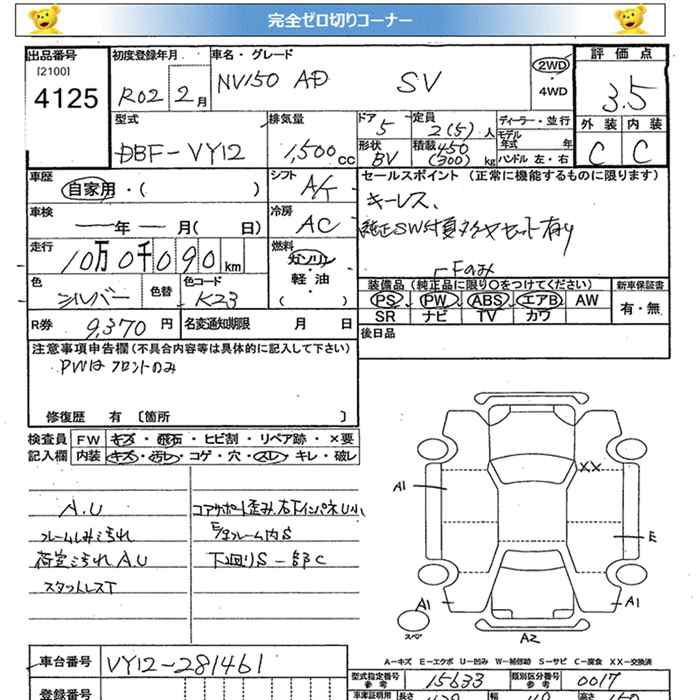 完全ゼロ切りコーナー
出品番号 初度登録年月 車名・グレード 評価点
[2100] NV150 AD SV 2WD 3.5
4125 R02 2月 ・4WD
外装 内装
型式 排気量 ドア 5 定員 2(5)人 ディーラー・並行
DBF-VY12 1,500cc 形状 BV 積載 450 (300) kg モデル年式 年 C C
ハンドル 左・右
車歴 シフト セールスポイント (正常に機能するものに限ります)
自家用・( ) A/T キーレス、
車検 冷房
ー年ー月( 日) AC 純正SW付夏タイヤセット有り
走行 燃料
10万0千090km ガソリン・軽油・( ) Fのみ
色 色替 色コード 装備品 (純正品に限り〇をつけてください) 新車保証書
シルバー K23 PS PW ABS エアB AW 有・無
SR ナビ TV カワ
R券 9,370円 名変通知期限 月 日 後日品
注意事項申告欄 (不具合内容等は具体的に記入して下さい)
PWはフロントのみ
修復歴 有 〔箇所 〕
検査員 FW キズ・飛石・ヒビ割・リペア跡・×要
記入欄 内装 キズ・汚レ・コゲ・穴・スレ・キレ・破レ
A.U コアサポート歪み 右下インパネU小
フレームしみ汚れ 左フレーム内S
荷室汚れ A.U 下回りS一部C
スタッドレスT
XX
A1
E
A1 A1
スペア
A2
A-キズ E-エクボ U-凹み W-補修跡 S-サビ C-腐食 XX-交換済
車台番号 VY12-281461 型式指定番号 参考 15633 類別区分番号 参考 0017
登録番号 車庫証明用 長さ 幅 高さ